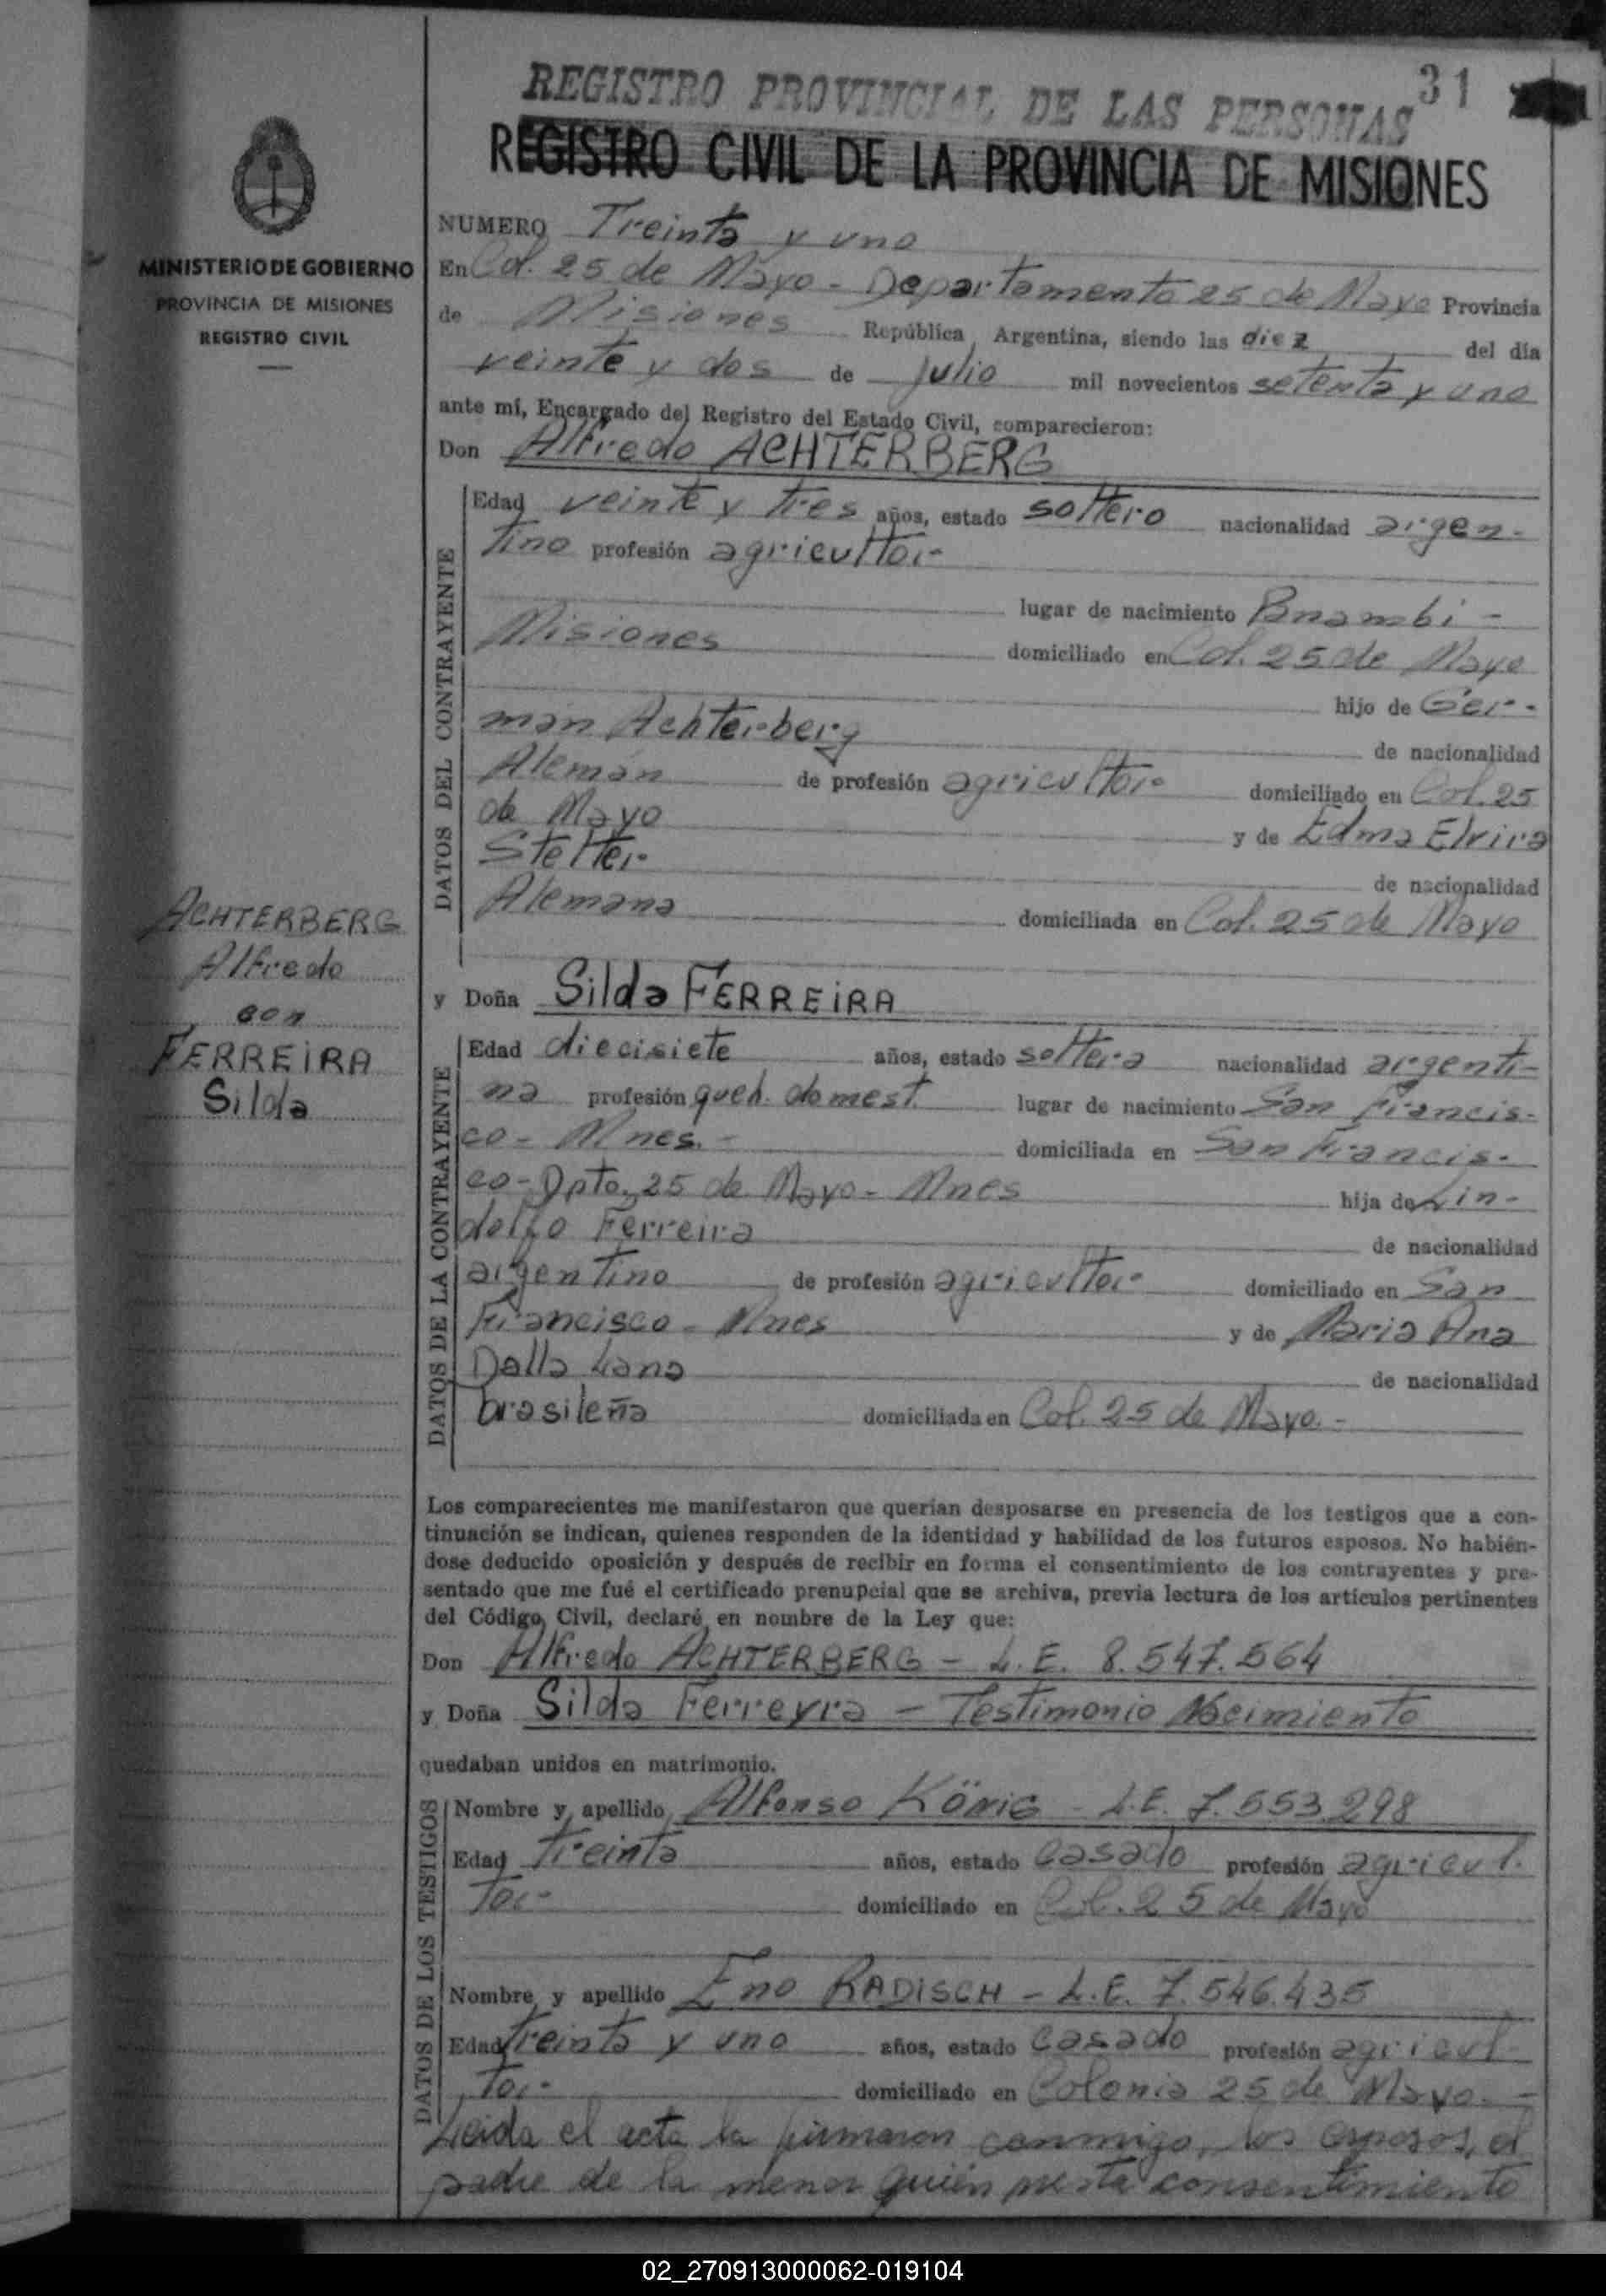 REGISTRO PROVINCIAL DE LAS PERSONAS
31
REGISTRO CIVIL DE LA PROVINCIA DE MISIONES
MINISTERIO DE GOBIERNO
PROVINCIA DE MISIONES
REGISTRO CIVIL
NUMERO Treinta y uno
En Col. 25 de Mayo - Departamento 25 de Mayo Provincia
de Misiones República Argentina, siendo las diez del día
veinte y dos de julio mil novecientos setenta y uno
ante mí, Encargado del Registro del Estado Civil, comparecieron:
Don Alfredo ACHTERBERG
DATOS DEL CONTRAYENTE
Edad veinte y tres años, estado soltero nacionalidad argen-
tino profesión agricultor
lugar de nacimiento Bnambi -
Misiones domiciliado en Col. 25 de Mayo
hijo de Ger-
man Achterberg de nacionalidad
Alemán de profesión agricultor domiciliado en Col. 25
de Mayo y de Edma Elvira
Stelter de nacionalidad
Alemana domiciliada en Col. 25 de Mayo
ACHTERBERG
Alfredo
con
FERREIRA
Silda
y Doña Silda FERREIRA
DATOS DE LA CONTRAYENTE
Edad diecisiete años, estado soltera nacionalidad argenti-
na profesión queh. domest. lugar de nacimiento San Francis-
co - Mnes. - domiciliada en San Francis-
co - Dpto. 25 de Mayo - Mnes hija de Lin-
dolfo Ferreira de nacionalidad
argentino de profesión agricultor domiciliado en San
Francisco - Mnes y de Maria Ana
Dalla Lana de nacionalidad
brasileña domiciliada en Col. 25 de Mayo. -
Los comparecientes me manifestaron que querían desposarse en presencia de los testigos que a con-
tinuación se indican, quienes responden de la identidad y habilidad de los futuros esposos. No habién-
dose deducido oposición y después de recibir en forma el consentimiento de los contrayentes y pre-
sentado que me fué el certificado prenupcial que se archiva, previa lectura de los artículos pertinentes
del Código Civil, declaré en nombre de la Ley que:
Don Alfredo ACHTERBERG - L.E. 8.547.564
y Doña Silda Ferreyra - Testimonio Nacimiento
quedaban unidos en matrimonio.
DATOS DE LOS TESTIGOS
Nombre y apellido Alfonso KÖNIG - L.E. 7.553.298
Edad treinta años, estado casado profesión agricul-
tor domiciliado en Col. 25 de Mayo
Nombre y apellido Eno RADISCH - L.E. 7.546.435
Edad treinta y uno años, estado casado profesión agricul-
tor domiciliado en Colonia 25 de Mayo. -
Leida el acta la firmaron conmigo, los esposos, el
padre de la menor quién presta consentimiento
02_270913000062-019104